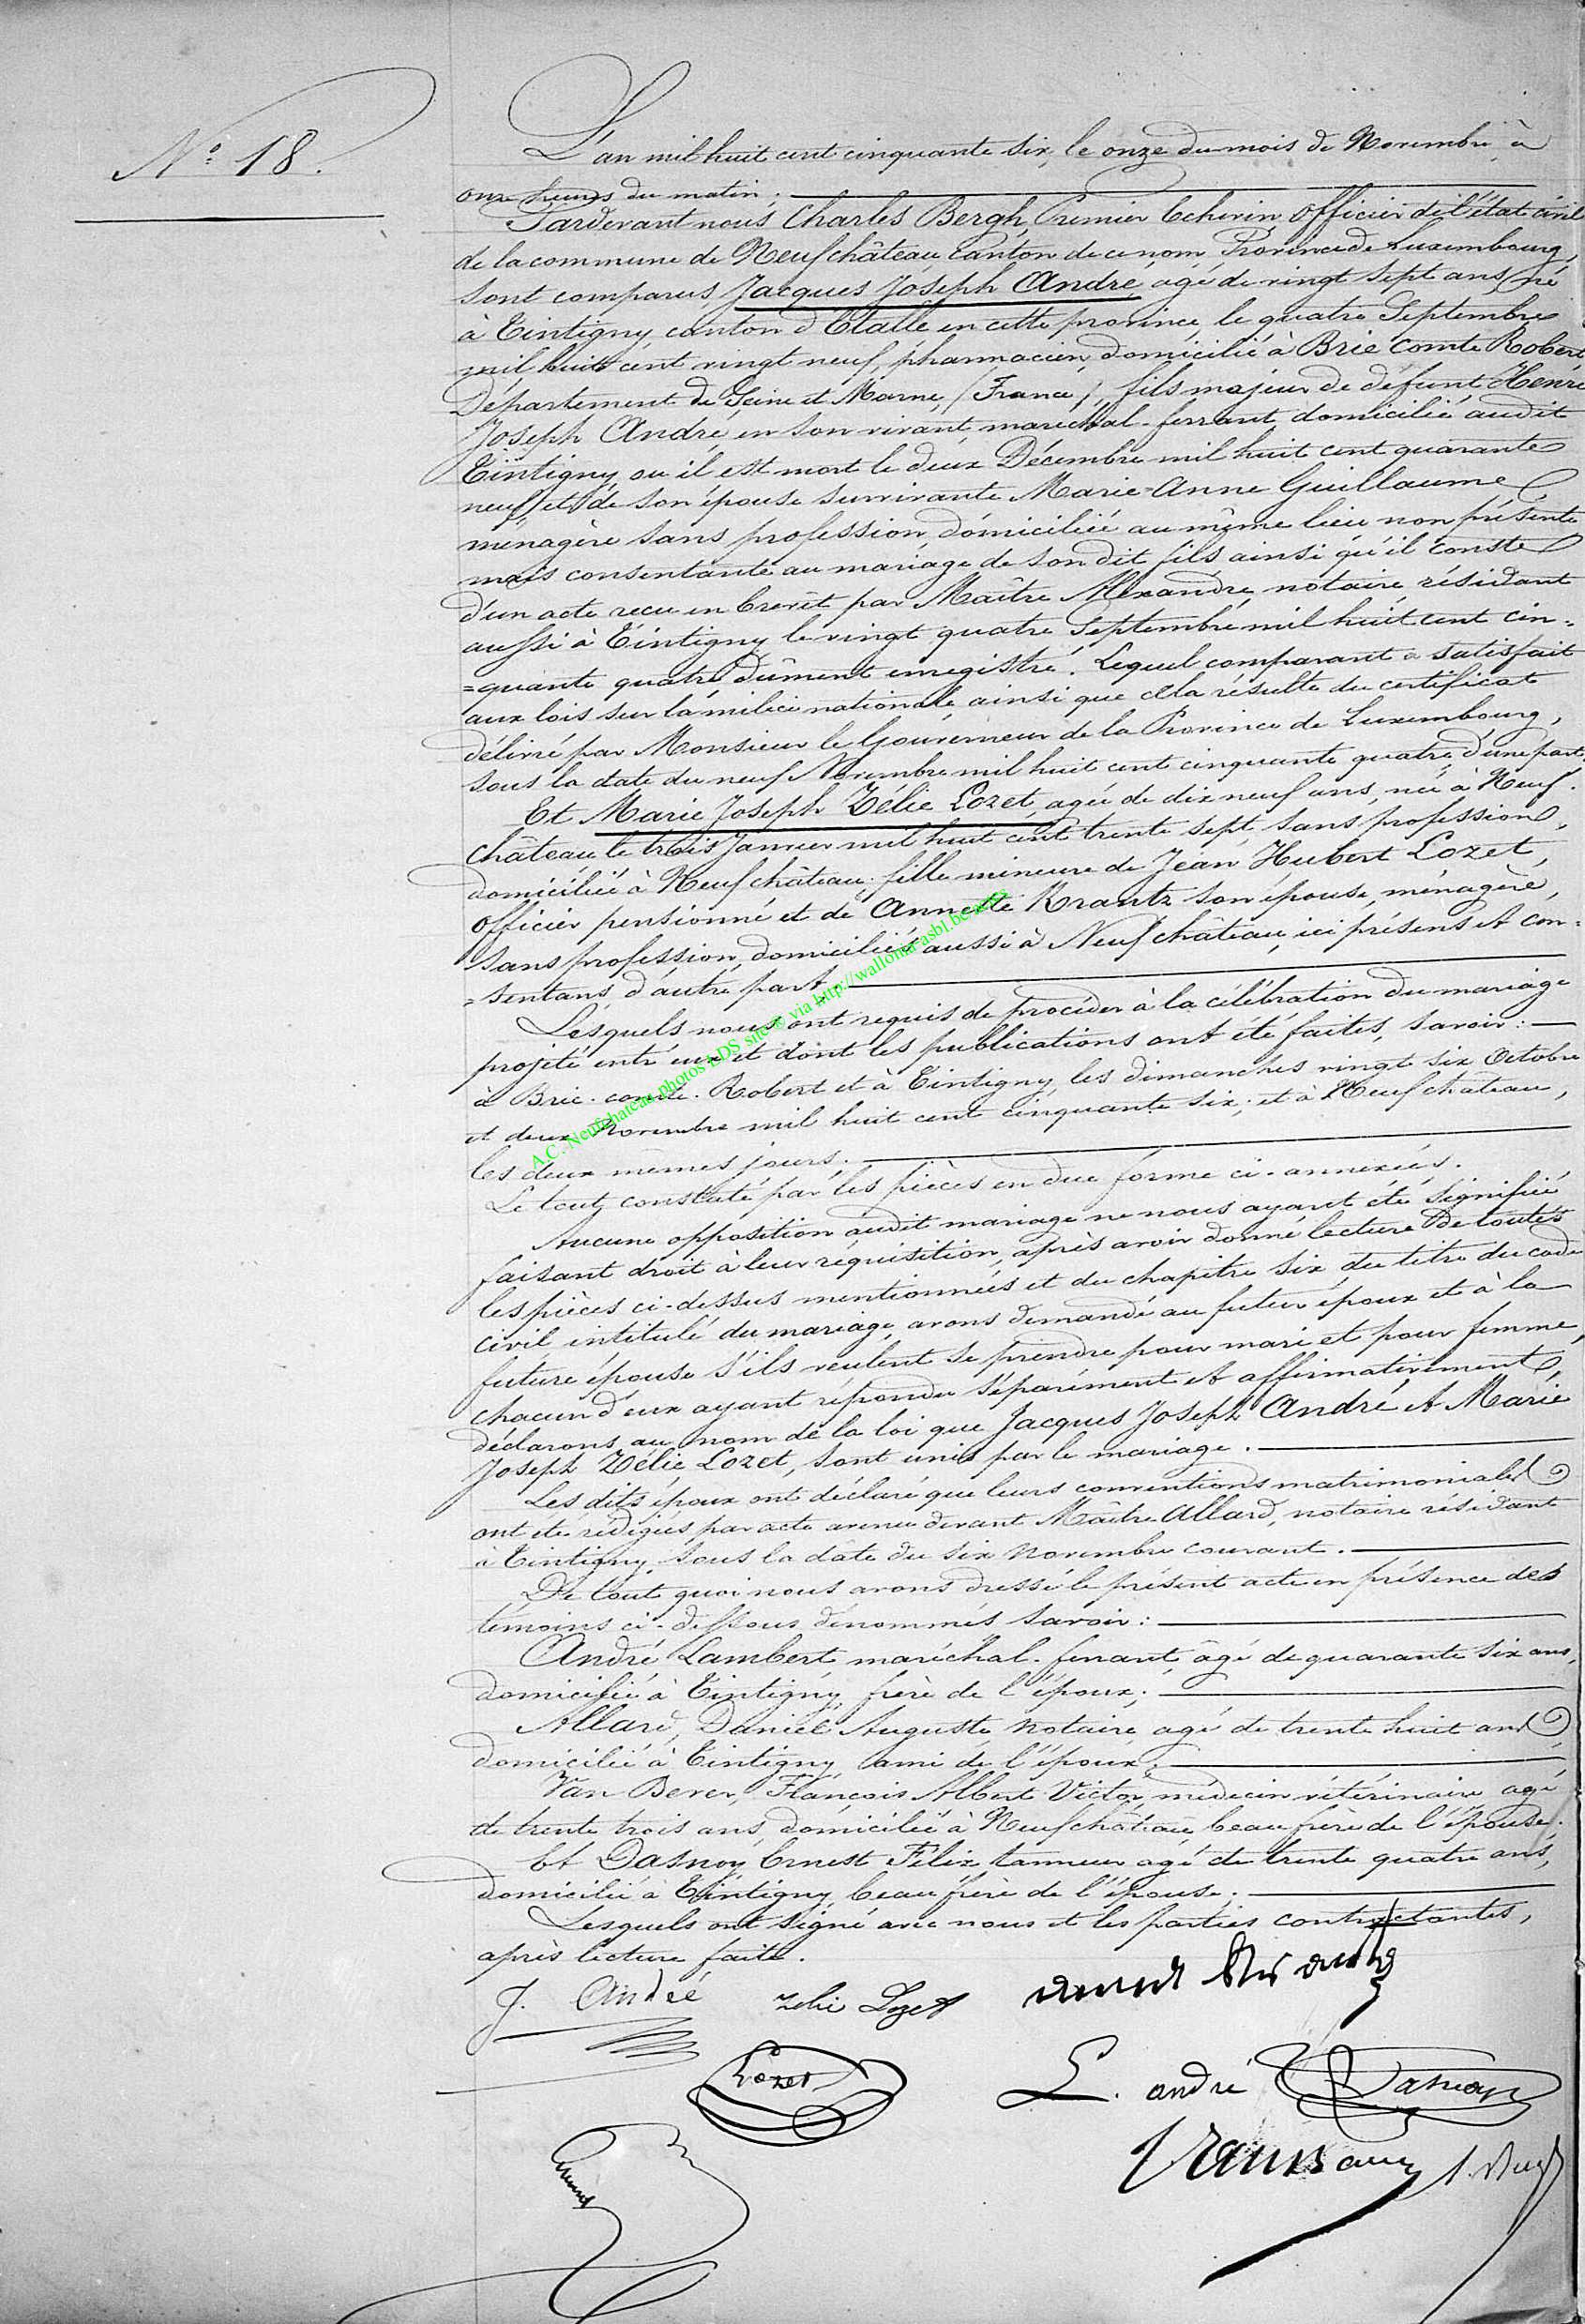 N° 18.
L'an mil huit cent cinquante six, le onze du mois de Novembre à
onze heures du matin ;
Pardevant nous Charles Bergh, Premier Echevin, officier de l'état civil
de la commune de Neufchâteau canton de ce nom, Province de Luxembourg,
sont comparus, Jacques Joseph André, agé de vingt sept ans, né
à Tintigny, canton d'Etalle en cette province, le quatre Septembre
mil huit cent vingt neuf, pharmacien, domicilié à Brie comte Robert
Département de Seine et Marne, (France), fils majeur de défunt Henri
Joseph André, en son vivant, maréchal-ferrant, domicilié audit
Tintigny, ou il est mort le deux Décembre mil huit cent quarante
neuf, et de son épouse survivante Marie-Anne Guillaume,
ménagère sans profession, domiciliée au même lieu non présente
mais consentante au mariage de son dit fils ainsi qu'il conste
d'un acte recu en brevêt par Maître Alexandre, notaire résidant
aussi à Tintigny le vingt quatre Septembre mil huit cent cin=
=quante quatre dûment enregistré. Lequel comparant a satisfait
aux lois sur la milice nationale, ainsi que cela résulte du certificat
délivré par Monsieur le Gouverneur de la Province de Luxembourg,
sous la date du neuf Novembre mil huit cent cinquante quatre, d'une part.
Et Marie Joseph Zélie Lozet, agée de dix neuf ans, née à Neuf.
château le trois Janvier mil huit cent trente sept, sans profession,
domiciliée à Neufchâteau, fille mineure de Jean Hubert Lozet,
officier pensionné et de Annette Krantz son épouse, ménagère,
sans profession, domiciliés aussi à Neufchâteau, ici présens et con=
=sentans, d'autre part.
Lesquels nous ont requis de procéder à la célébration du mariage
projeté entr'eux et dont les publications ont été faites, savoir :
à Brie-comte-Robert et à Tintigny, les dimanches vingt six Octobre
et deux Novembre mil huit cent cinquante six; et à Neufchâteau,
les deux mêmes jours.
Le tout constaté par les pièces en due forme ci-annexées.
Aucune opposition audit mariage ne nous ayant été signifiée
faisant droit à leur réquisition, après avoir donné lecture de toutes
les pièces ci-dessus mentionnées et du chapitre six du titre du code
civil intitulé du mariage, avons demandé au futur époux et à la
future épouse s'ils veulent se prendre pour mari et pour femme,
chacun d'eux ayant répondu séparément et affirmativement,
déclarons au nom de la loi que Jacques Joseph André et Marie
Joseph Zélie Lozet, sont unis par le mariage.
Les dits époux ont déclaré que leurs conventions matrimoniales
ont été rédigées par acte avenu devant Maître Allard, notaire résidant
à Tintigny, sous la date du six novembre courant.
De tout quoi nous avons dressé le présent acte en présence des
témoins ci-dessous dénommés savoir :
André Lambert, maréchal-ferrant, âgé de quarante six ans,
domicilié à Tintigny, frère de l'époux;
Allard, Daniel Auguste, notaire, agé de trente huit ans,
domicilié à Tintigny, ami de l'époux;
Van Bever, François Albert Victor, médecin vétérinaire, agé
de trente trois ans, domicilié à Neufchâteau, beau frère de l'épouse.
Et Dasnoy Ernest Félix, tanneur agé de trente quatre ans,
domicilié à Tintigny, beau frère de l'épouse;
Lesquels ont signé avec nous et les parties contractantes,
après lecture faite.
J. André Zelie Lozet
Lozet L. andré Dasnoy
A.C. Neufchateau photos LDS site © via http://wallonia-asbl.be